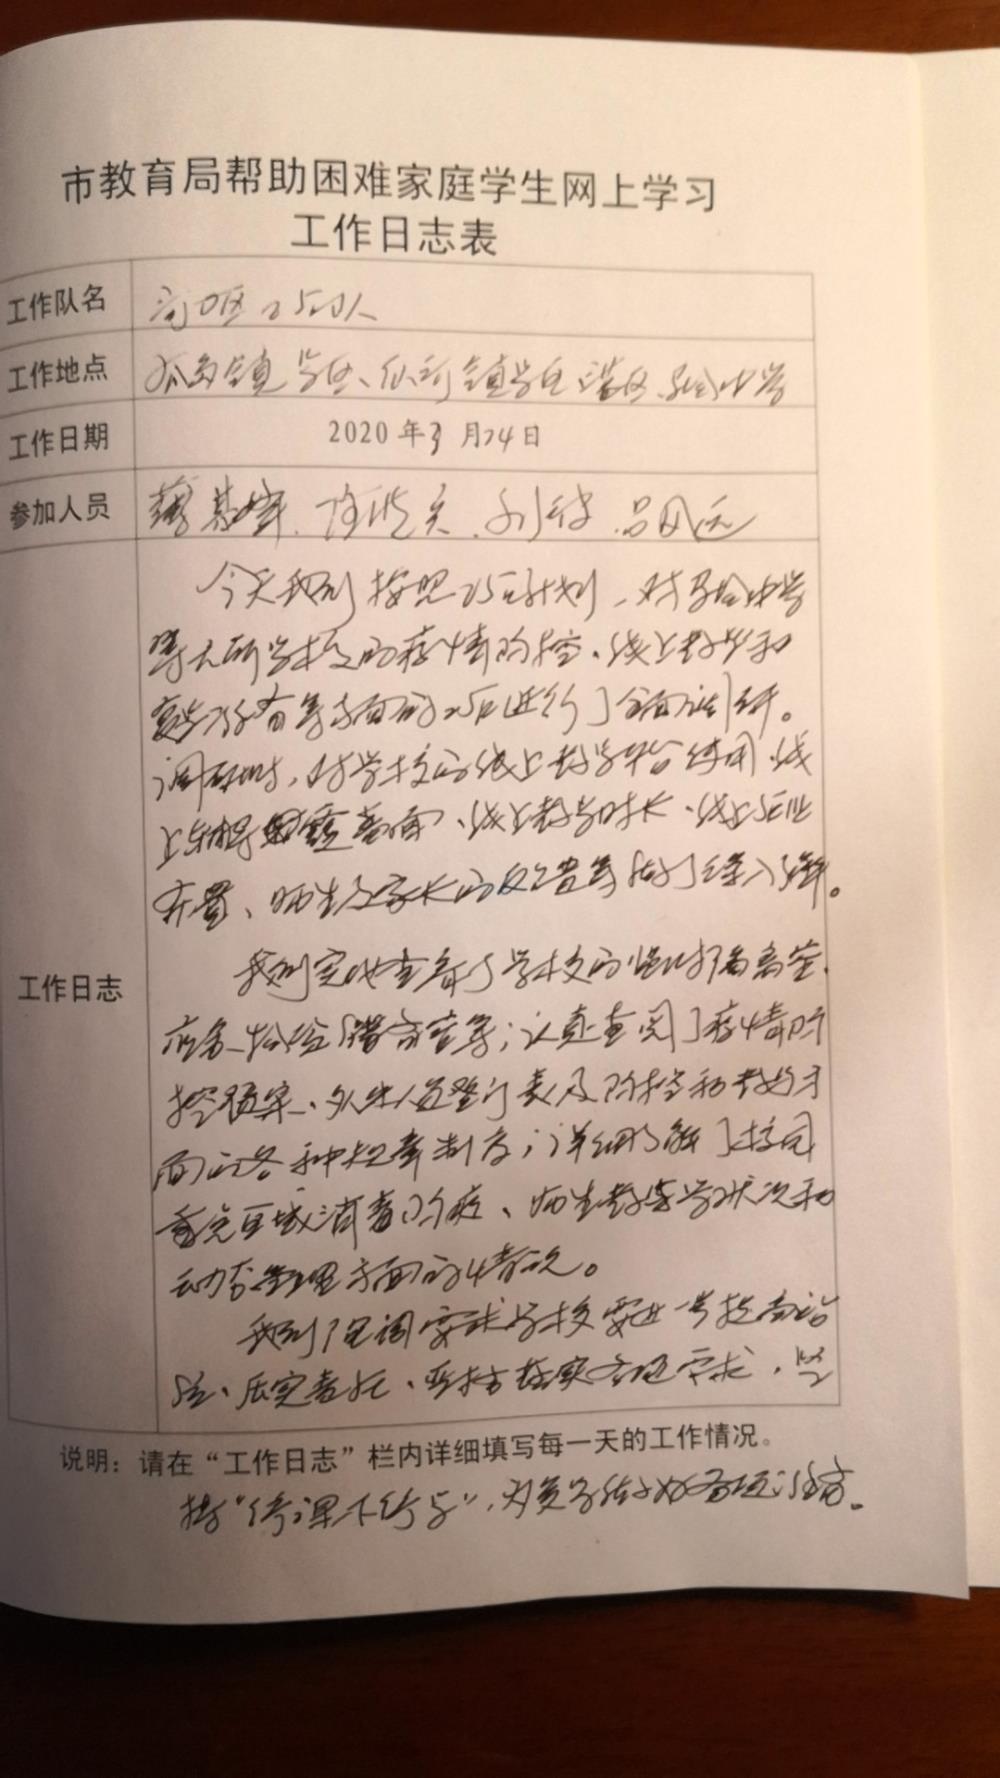 市教育局帮助困难家庭学生网上学习
工作日志表
工作队名 河口区工作队
工作地点 孤岛镇学区、仙河镇学区 中学
工作日期 2020年3月24日
参加人员 吕风
今天我们按照工作计划,对 中学
等九所学校的疫情防控、线上教学和
等方面的工作进行了全面调研。
调研时,对学校的线上教学平台使用、线
上 、线上教学时长、线上作业
布置、师生及家长的反馈等做了深入了解。
我们实地查看了学校的临时隔离室、
室等;认真查阅了疫情防
控预案、外来人员登记表及防控和教学方
面的各种规章制度;详细了解了校园
重点区域消毒防疫、师生 状况和
动态管理方面的情况。
我们强调要求学校要进一步提高站
位、压实责任、严格落实各项要求,坚
工作日志
说明:请在“工作日志”栏内详细填写每一天的工作情况。
持“停课不停学”,为 做好各项 。